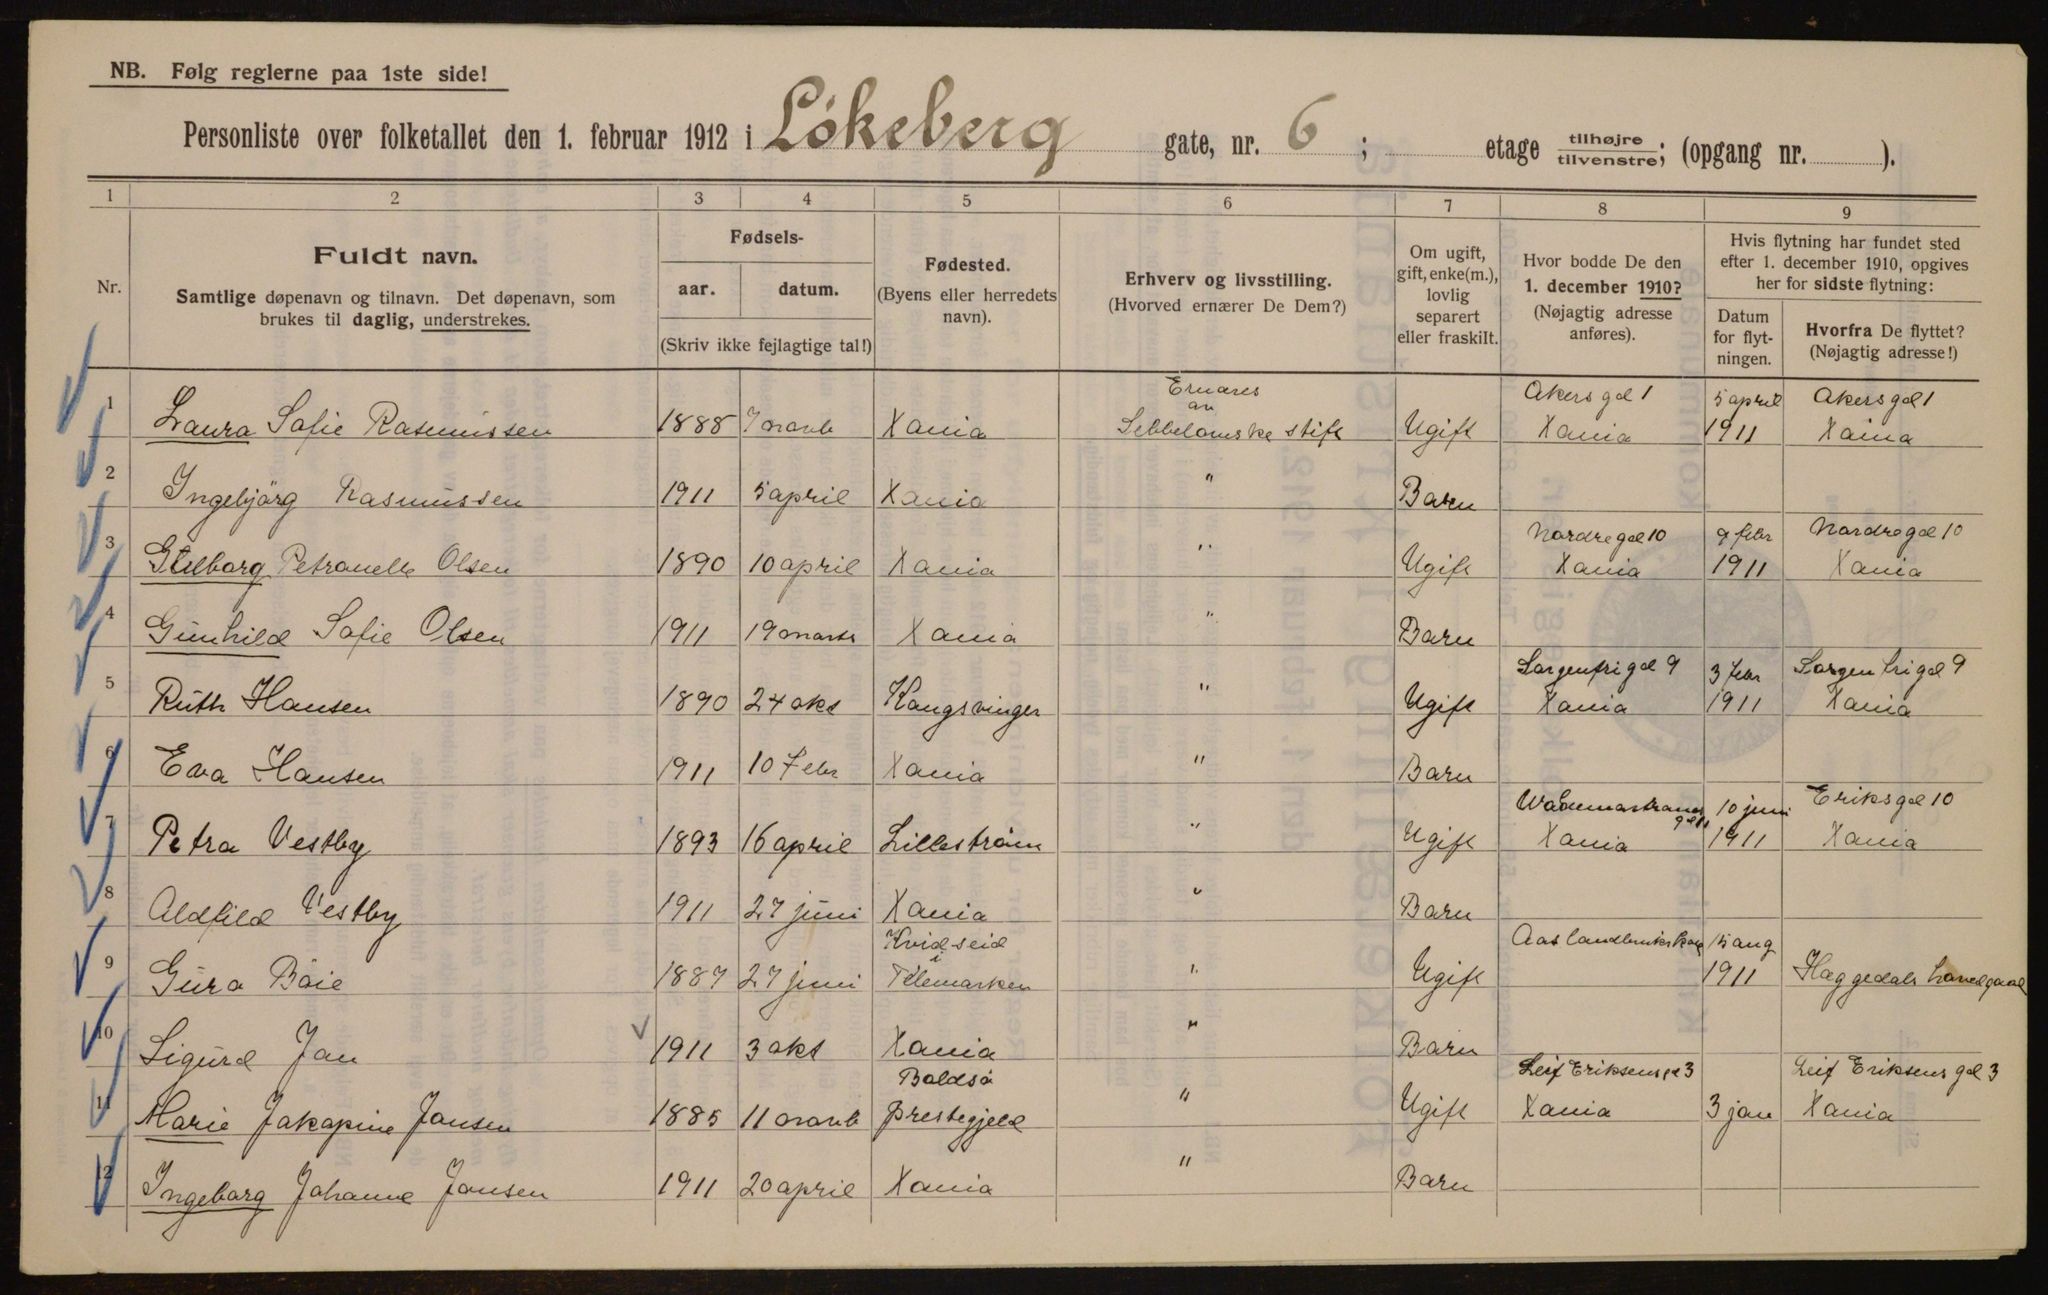 NB. Følg reglerne paa 1ste side!
Personliste over folketallet den 1. februar 1912 i Lökeberg gate, nr. 6 ; etage tilhøjre/tilvenstre; (opgang nr. ).
1 2 3 4 5 6 7 8 9
Nr.
Fuldt navn.
Samtlige døpenavn og tilnavn. Det døpenavn, som
brukes til daglig, understrekes.
Fødsels-
aar. datum.
(Skriv ikke fejlagtige tal!)
Fødested.
(Byens eller herredets
navn).
Erhverv og livsstilling.
(Hvorved ernærer De Dem?)
Om ugift,
gift, enke(m.),
lovlig
separert
eller fraskilt.
Hvor bodde De den
1. december 1910?
(Nøjagtig adresse
anføres).
Hvis flytning har fundet sted
efter 1. december 1910, opgives
her for sidste flytning:
Datum
for flyt-
ningen.
Hvorfra De flyttet?
(Nøjagtig adresse!)
Ernæres Akers gd 1 5 april Akers gd 1
an
1 Laura Sofie Rasmussen 1888 7 novb Xania stift Ugift Xania 1911 Xania
2 Ingebjörg Rasmussen 1911 5 april Xania " Barn
Nordre gd 10 9 febr Nordre gd 10
3 Petronelle Olsen 1890 10 april Xania " Ugift Xania 1911 Xania
4 Gunhild Sofie Olsen 1911 19 marts Xania " Barn
Sorgenfri gd 9 3 febr Sorgenfri gd 9
5 Ruth Hansen 1890 24 okt Kongsvinger " Ugift Xania 1911 Xania
6 Eva Hansen 1911 10 Febr Xania " Barn
10 juni Eriks gd 10
7 Petra Vestby 1893 16 april Lilleström " Ugift Xania 1911 Xania
8 Aldfild Vestby 1911 27 juni Xania " Barn
Kvidseid Aas 15 aug
i
9 Gura Böie 1887 27 juni Telemarken " Ugift 1911
10 Sigurd Jan 1911 3 okt Xania " Barn
Boldsö Leif Eriksens gd 3 Leif Eriksens gd 3
11 Marie Jakopine Jansen 1885 11 novb prestegjeld " Ugift Xania 3 jan Xania
12 Ingeborg Johanne Jansen 1911 20 april Xania " Barn